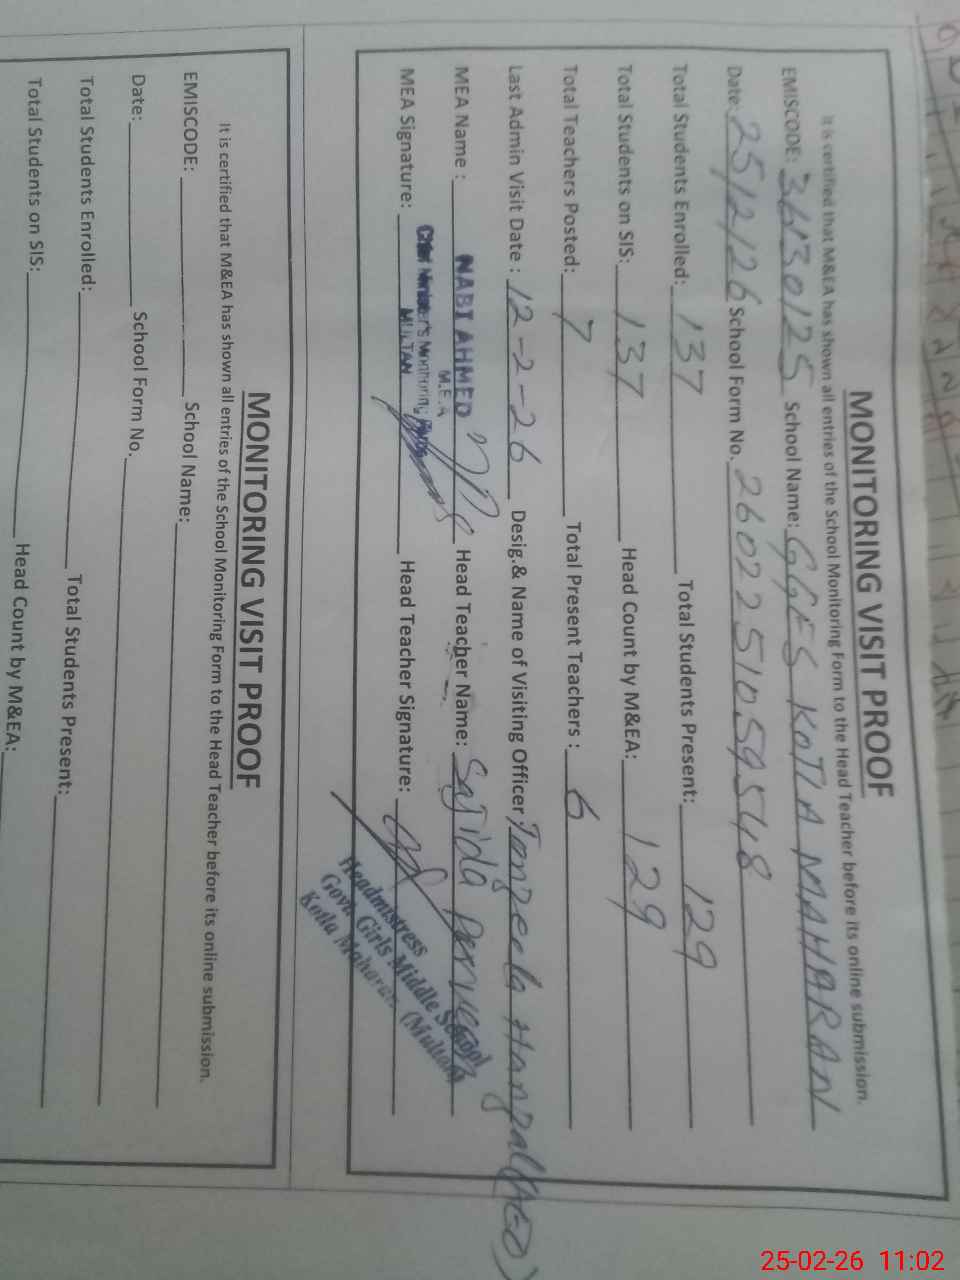 MONITORING VISIT PROOF
It is certified that M&EA has shown all entries of the School Monitoring Form to the Head Teacher before its online submission.
EMISCODE: 36130125 School Name: GGES KOTLA MAHARAN
Date: 25/2/26 School Form No. 2602251059548
Total Students Enrolled: 137 Total Students Present: 129
Total Students on SIS: 137 Head Count by M&EA: 129
Total Teachers Posted: 7 Total Present Teachers : 6
Last Admin Visit Date : 12-2-26 Desig.& Name of Visiting Officer (AEO)
MEA Name : NABI AHMED Head Teacher Name: Sajida Perveen
M.E.A
MEA Signature: Chief Minister's Monitoring Head Teacher Signature:
MULTAN
Headmistress
Govt. Girls Middle School
Kotla Maharan (Multan)
MONITORING VISIT PROOF
It is certified that M&EA has shown all entries of the School Monitoring Form to the Head Teacher before its online submission.
EMISCODE: School Name:
Date: School Form No.
Total Students Enrolled: Total Students Present:
Total Students on SIS: Head Count by M&EA:
25-02-26 11:02